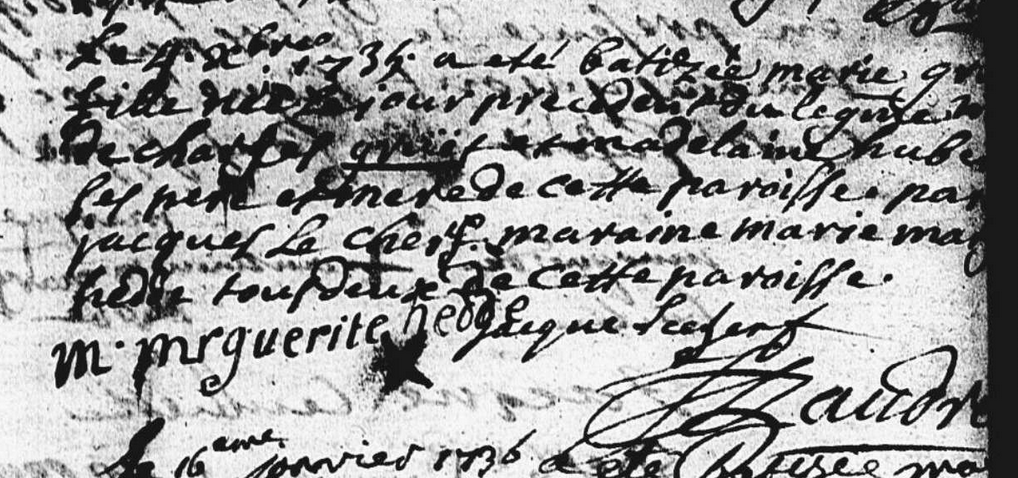 Le 4. Xbres 1735 a eté batizée marie
fille née le jour precedent du legitime
de charles et madelaine hube
ses pere et mere de cette paroisse. par
jacques Le cherf. maraine marie mar
tous deux de cette paroisse.
m. mrguerite jacque lecherf
Le 16eme janvier 1736 a eté Batizée ma